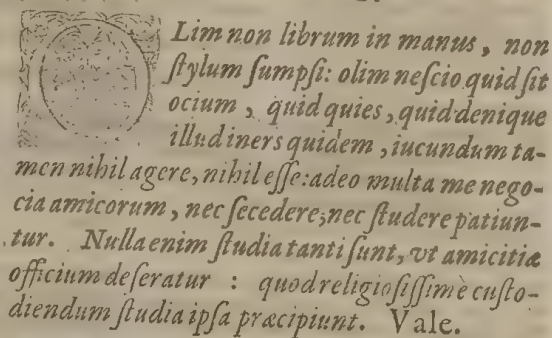 OLim non librum in manus, non
ſtylum ſumpſi: olim neſcio quid ſit
ocium, quid quies, quid denique
illud iners quidem, iucundum ta-
men nihil agere, nihil eſſe: adeo multa me nego-
cia amicorum, nec ſecedere, nec ſtudere patiun-
tur. Nulla enim ſtudia tanti ſunt, vt amicitiæ
officium deſeratur : quod religioſiſſimè cuſto-
diendum ſtudia ipſa præcipiunt. Vale.